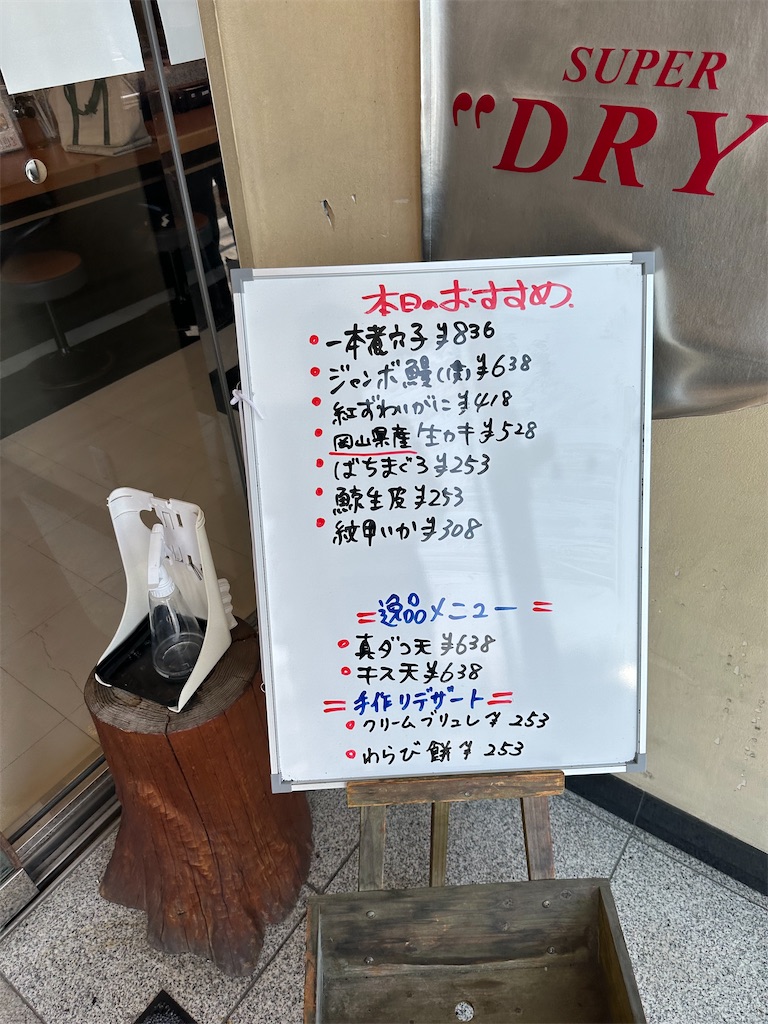 SUPER
"DRY
本日のおすすめ.
一本煮穴子 ¥836
ジャンボ鰻(1貫) ¥638
紅ずわいがに ¥418
岡山県産 生カキ ¥528
ばちまぐろ ¥253
鯨生皮 ¥253
紋甲いか ¥308
=逸品メニュー=
真ダコ天 ¥638
キス天 ¥638
=手作りデザート=
クリームブリュレ ¥253
わらび餅 ¥253